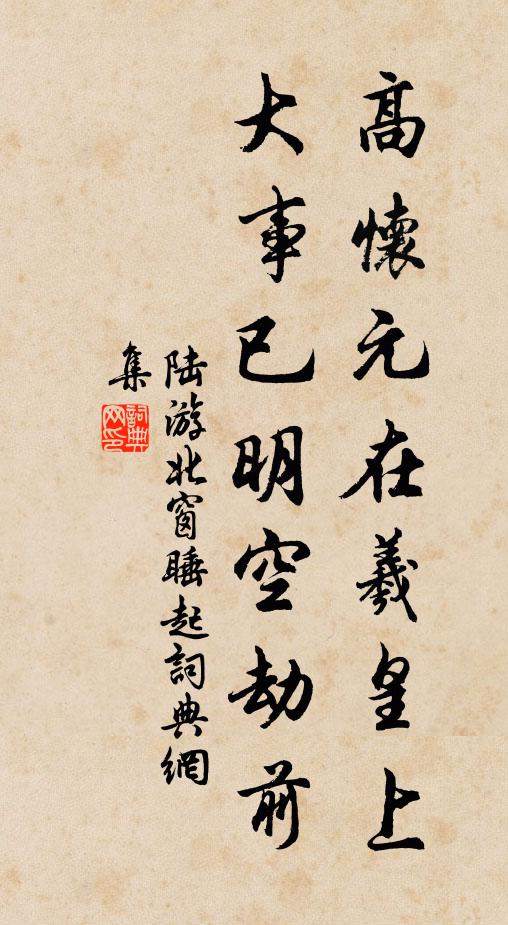 高懷元在羲皇上
大事已明空劫前
陆游北窗睡起詞典網
集
詞典
网印